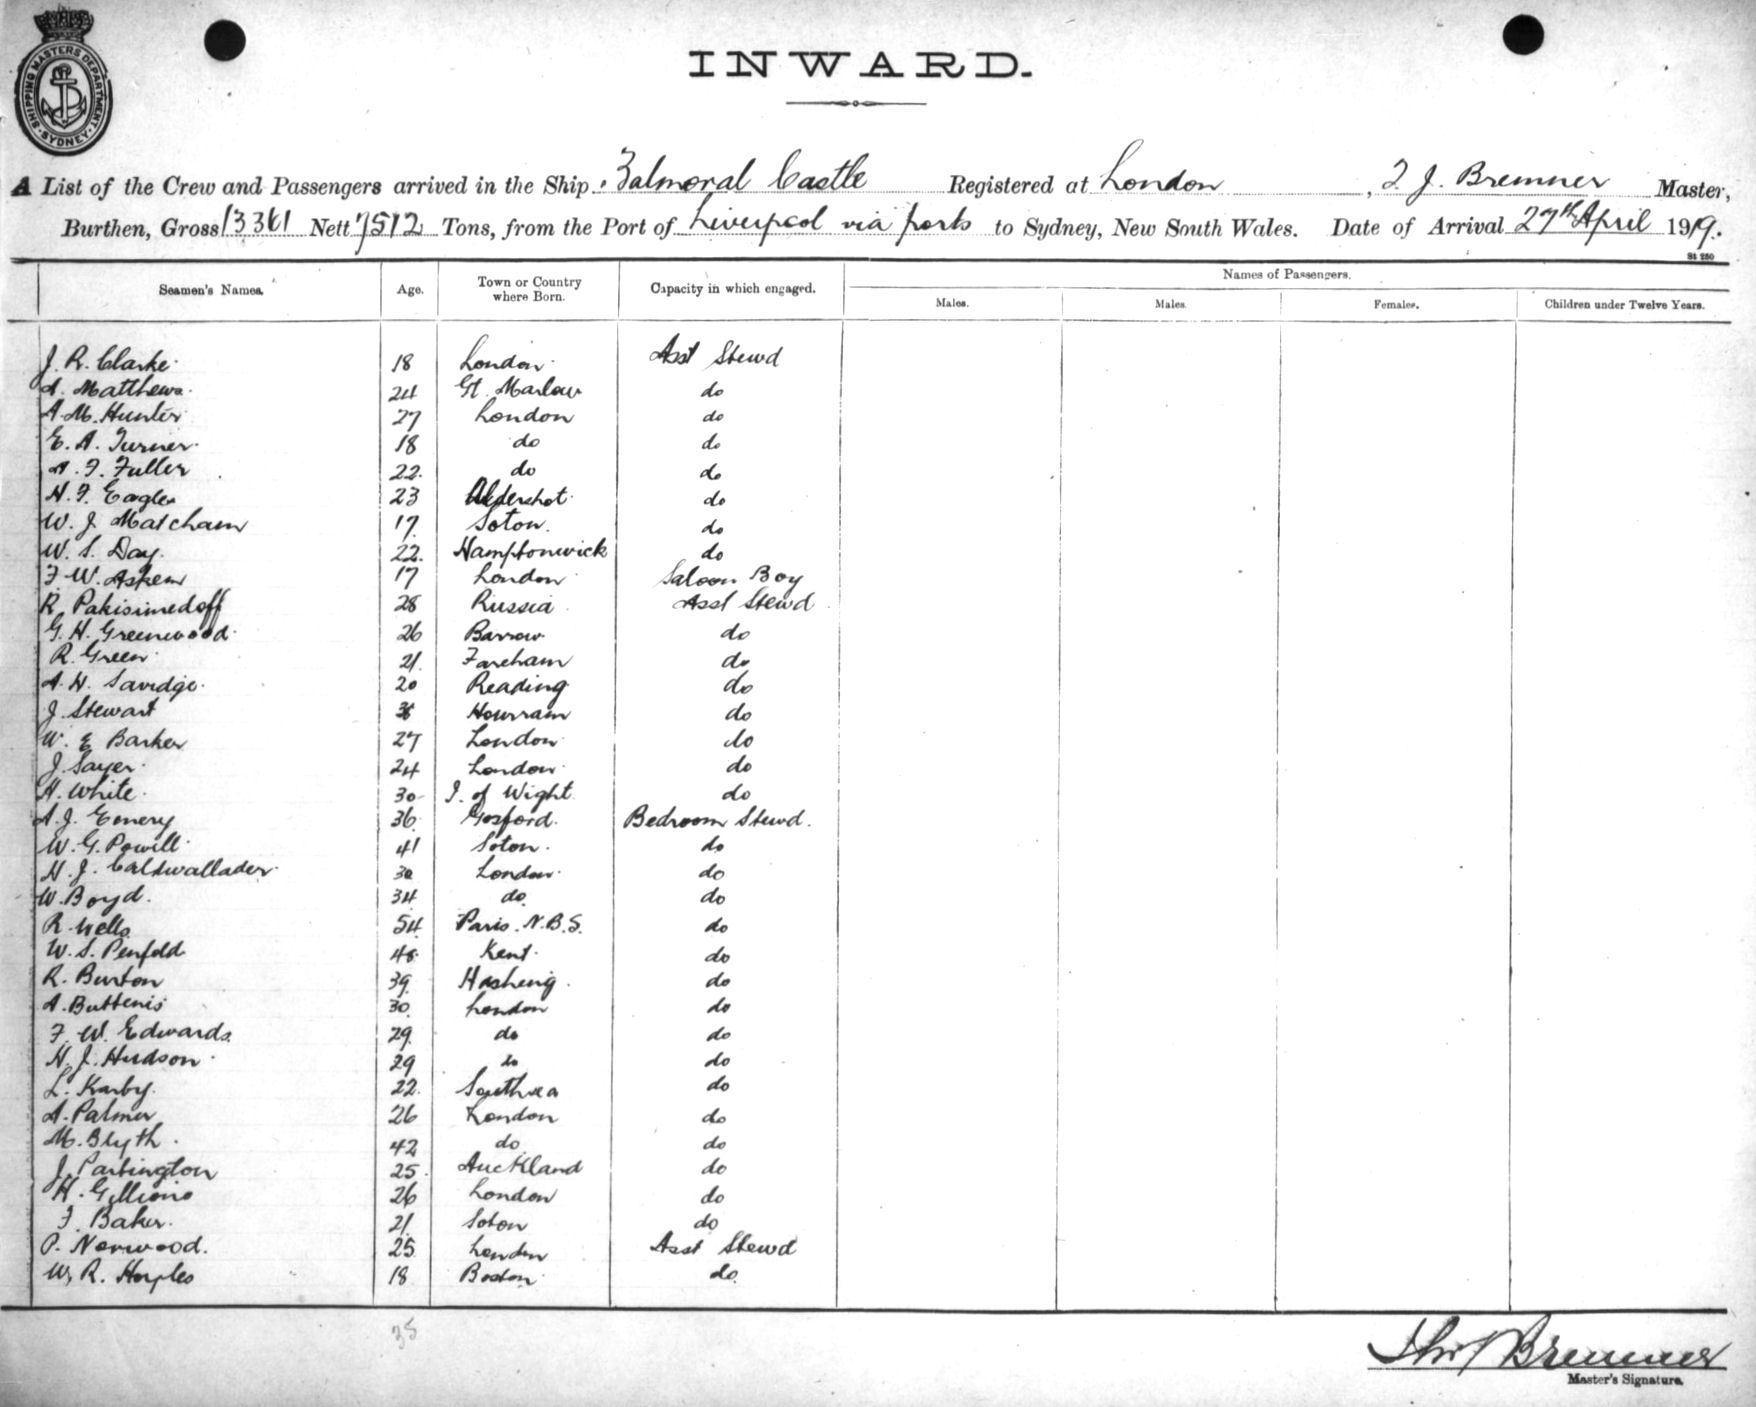 SHIPPING MASTERS DEPARTMENT
SYDNEY
INWARD.
A List of the Crew and Passengers arrived in the Ship Balmoral Castle Registered at London, T. J. Bremner Master,
Burthen, Gross 13361 Nett 7512 Tons, from the Port of Liverpool via ports to Sydney, New South Wales. Date of Arrival 27th April 1919.
St 250
Seamen's Names. Age. Town or Country where Born. Capacity in which engaged. Names of Passengers.
Males. Males. Females. Children under Twelve Years.
J. R. Clarke 18 London Asst Stewd
A. Matthews 24 Gt. Marlow do
A. M. Hunter 27 London do
E. A. Turner 18 do do
A. F. Fuller 22 do do
H. F. Eagles 23 Aldershot do
W. J. Matcham 17 Soton do
W. S. Day 22 Hamptonwick do
F. W. Askem 17 London Saloon Boy
R. Pakisimedoff 28 Russia Asst Stewd
G. H. Greenwood 26 Barrow do
R. Green 21 Fareham do
A. H. Savidge 20 Reading do
J. Stewart Howram do
W. E Barker 27 London do
J. Sayer 24 London do
H. White 30 I. of Wight do
A. J. Emery 36 Gosford Bedroom Stewd.
W. G. Powill 41 Soton do
H. J. Caldwallader 30 London do
W. Boyd. 34 do do
R. Wells 54 Paris. N.B.S. do
W. S. Penfold 48 Kent do
R. Burton 39 Hasheng do
A. Buttenis 30 London do
F. W. Edwards 29 do do
H. J. Hudson 29 do do
L. Karby 22 Southsea do
A. Palmer 26 London do
M. Blyth 42 do do
J. Partington 25 Auckland do
H. 26 London do
F. Baker 21 Soton do
P. Norwood. 25 London Asst Stewd
W. R. Hoyles 18 Boston do
35
Bremner
Master's Signature.